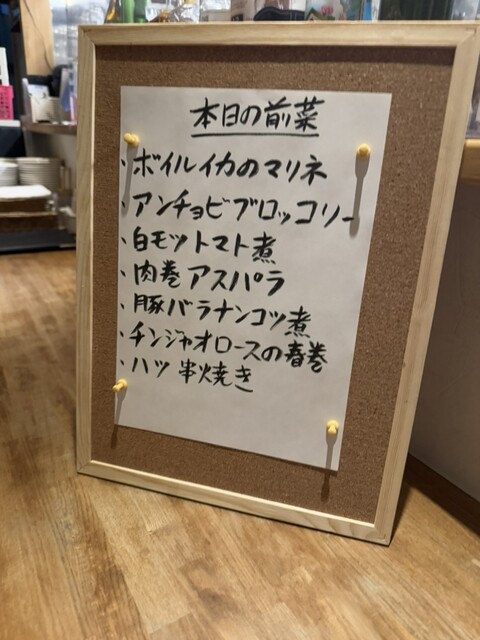 本日の前菜
・ボイルイカのマリネ
・アンチョビブロッコリー
・白モツトマト煮
・肉巻アスパラ
・豚バラナンコツ煮
・チンジャオロースの春巻
・ハツ串焼き